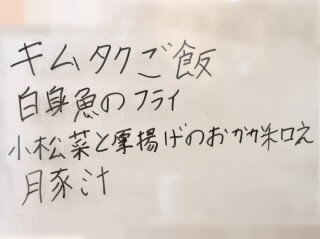 キムタクご飯
白身魚のフライ
小松菜と厚揚げのおかか和え
豚汁